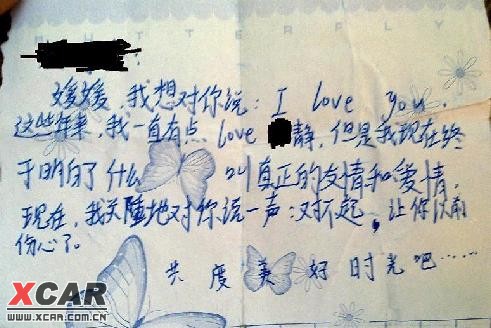 BUTTERFLY
媛媛，我想对你说：I love you.
这些年来，我一直有点love 静，但是我现在终
于明白了什么叫真正的友情和爱情，
现在，我关隆地对你说一声：对不起，让你以前
伤心了。
共度美好时光吧……
XCAR
WWW.XCAR.COM.CN